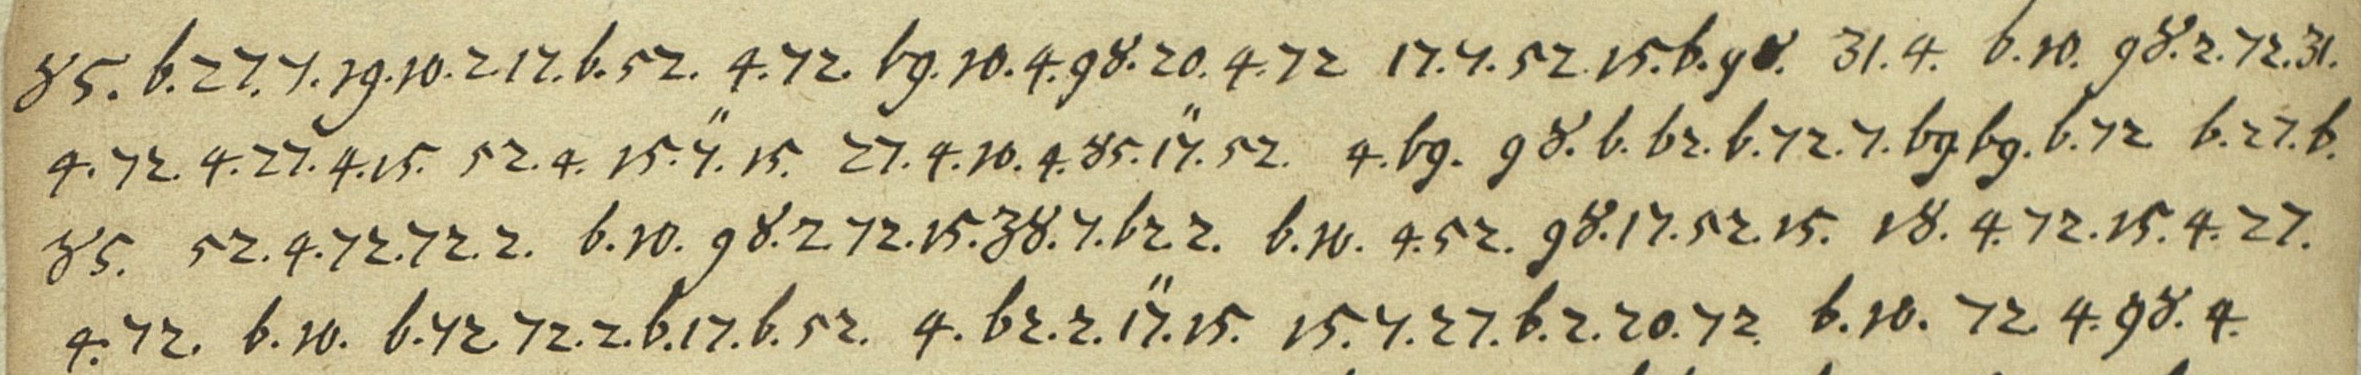 85. b. 27. 7. 19. 10. 2 17. b. 52. 4. 72. b9. 10. 4. 98. 20. 4. 72 17. 7. 52. 15. b. 98. 31. 4. b. 10. 98. 2. 72. 31.
4. 72. 4. 27. 4. 15. 52. 4. 15. ÿ. 15. 27. 4. 10. 4. 85. 1ÿ. 52. 4. b9. 98. b. b2. b. 72. 7. b9. b9. b. 72 b. 27. b.
85. 52. 4. 72. 72. 2. b. 10. 98. 2 72. 15. 38. 7. b2 2. b. 10. 4. 52. 98. 17. 52. 15. 18. 4. 72. 15. 4. 27.
4. 72. b. 10. b. 72 72. 2. b. 17. b. 52. 4. b2. 2. 1ÿ. 15. 15. 7. 27. b. 2. 20. 72 b. 10. 72 4. 98. 4.